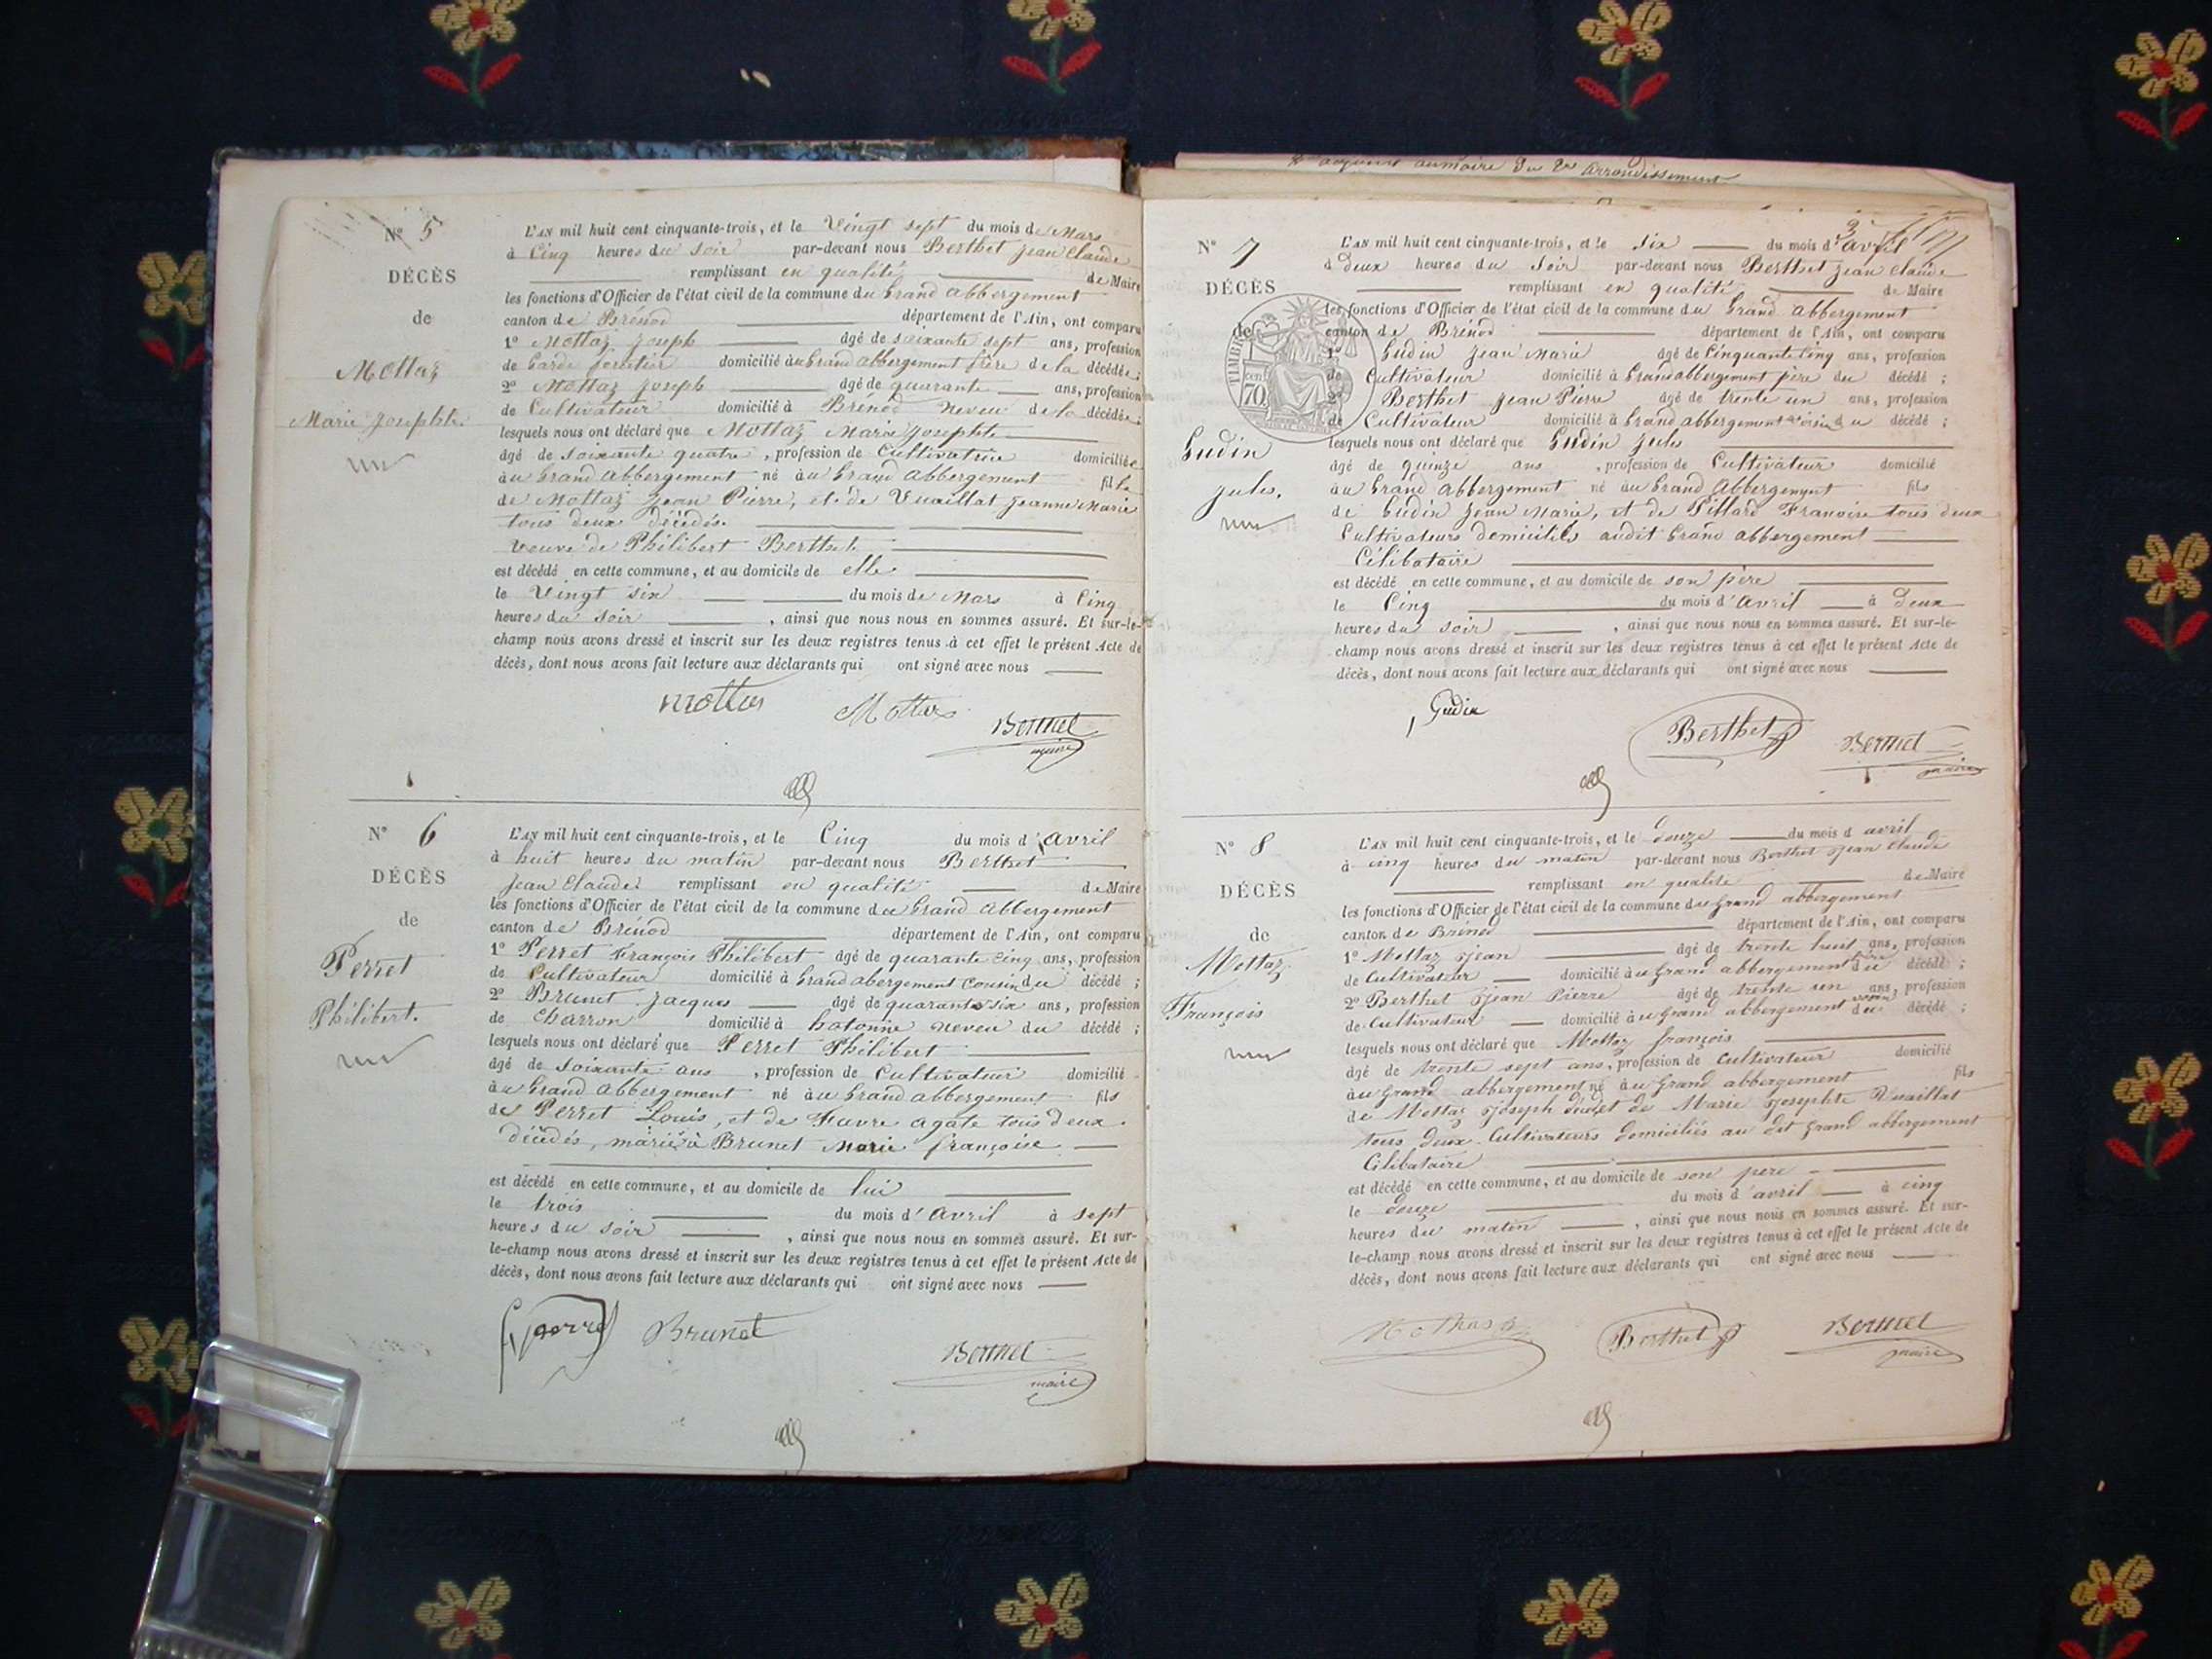 Nº 5
DÉCÈS
de
Mottaz
Marie Josephte.
L'AN mil huit cent cinquante-trois, et le Vingt sept du mois de Mars
à Cinq heures du soir par-devant nous Berthet Jean Claude
remplissant en qualité de Maire
les fonctions d'Officier de l'état civil de la commune du Grand Abbergement
canton de Brénod département de l'Ain, ont comparu
1º Mottaz Joseph âgé de soixante sept ans, profession
de Garde forestier domicilié au Grand abbergement frère de la décédée;
2º Mottaz Joseph âgé de quarante ans, profession
de Cultivateur domicilié à Brénod neveu de la décédée;
lesquels nous ont déclaré que Mottaz Marie Josephte
âgé de soixante quatre, profession de Cultivatrice domiciliée
au Grand Abbergement né au Grand Abbergement fille
de Mottaz Jean Pierre, et de Vuaillat Jeanne Marie
tous deux décédés.
veuve de Philibert Berthet
est décédé en cette commune, et au domicile de elle
le Vingt six du mois de Mars à Cinq
heures du soir, ainsi que nous nous en sommes assuré. Et sur-le-
champ nous avons dressé et inscrit sur les deux registres tenus à cet effet le présent Acte de
décès, dont nous avons fait lecture aux déclarants qui ont signé avec nous
Mottaz
Berthet
maire
Nº 6
DÉCÈS
de
Perret
Philibert.
L'AN mil huit cent cinquante-trois, et le Cinq du mois d'Avril
à huit heures du matin par-devant nous Berthet
Jean Claude remplissant en qualité de Maire
les fonctions d'Officier de l'état civil de la commune du Grand Abbergement
canton de Brénod département de l'Ain, ont comparu
1º Perret François Philibert âgé de quarante cinq ans, profession
de Cultivateur domicilié à Grand abergement cousin du décédé;
2º Brunet Jacques âgé de quarante six ans, profession
de Charron domicilié à hotonne neveu du décédé;
lesquels nous ont déclaré que Perret Philibert
âgé de soixante ans, profession de Cultivateur domicilié
au Grand Abbergement né au Grand abbergement fils
de Perret Louis, et de Favre agate tous deux
décédés, marié à Brunet Marie françoise
est décédé en cette commune, et au domicile de lui
le trois du mois d'Avril à sept
heures du soir, ainsi que nous nous en sommes assuré. Et sur-
le-champ nous avons dressé et inscrit sur les deux registres tenus à cet effet le présent Acte de
décès, dont nous avons fait lecture aux déclarants qui ont signé avec nous
Brunet
Berthet
maire
du 2me arrondissement
Nº 7
DÉCÈS
de
Gudin
Jules.
TIMBRE
70
L'AN mil huit cent cinquante-trois, et le six du mois d'avril
à deux heures du soir par-devant nous Berthet Jean Claude
remplissant en qualité de Maire
les fonctions d'Officier de l'état civil de la commune du Grand Abbergement
canton de Brénod département de l'Ain, ont comparu
1º Gudin Jean Marie âgé de cinquante cinq ans, profession
de Cultivateur domicilié à Grand abbergement père du décédé;
2º Berthet Jean Pierre âgé de trente un ans, profession
de Cultivateur domicilié à Grand abbergement voisin du décédé;
lesquels nous ont déclaré que Gudin Jules
âgé de quinze ans, profession de Cultivateur domicilié
au Grand Abbergement né au Grand Abbergement fils
de Gudin Jean Marie, et de Pillard Françoise tous deux
Cultivateurs domiciliés audit Grand abbergement
Célibataire
est décédé en cette commune, et au domicile de son père
le Cinq du mois d'Avril à deux
heures du soir, ainsi que nous nous en sommes assuré. Et sur-le-
champ nous avons dressé et inscrit sur les deux registres tenus à cet effet le présent Acte de
décès, dont nous avons fait lecture aux déclarants qui ont signé avec nous
Gudin
Berthet
Berthet
maire
Nº 8
DÉCÈS
de
Mottaz
François
L'AN mil huit cent cinquante-trois, et le douze du mois d'avril
à cinq heures du matin par-devant nous Berthet Jean Claude
remplissant en qualité de Maire
les fonctions d'Officier de l'état civil de la commune du grand abbergement
canton de Brénod département de l'Ain, ont comparu
1º Mottaz Jean âgé de trente huit ans, profession
de Cultivateur domicilié au grand abbergement frère du décédé;
2º Berthet Jean Pierre âgé de trente un ans, profession
de Cultivateur domicilié au grand abbergement voisin du décédé;
lesquels nous ont déclaré que Mottaz françois
âgé de trente sept ans, profession de Cultivateur domicilié
au grand abbergement né au grand abbergement fils
de Mottaz Joseph et de Marie Josephte Vuaillat
tous deux Cultivateurs domiciliés au dit grand abbergement
Célibataire
est décédé en cette commune, et au domicile de son père
le douze du mois d'avril à cinq
heures du matin, ainsi que nous nous en sommes assuré. Et sur-
le-champ nous avons dressé et inscrit sur les deux registres tenus à cet effet le présent Acte de
décès, dont nous avons fait lecture aux déclarants qui ont signé avec nous
Berthet
Berthet
maire